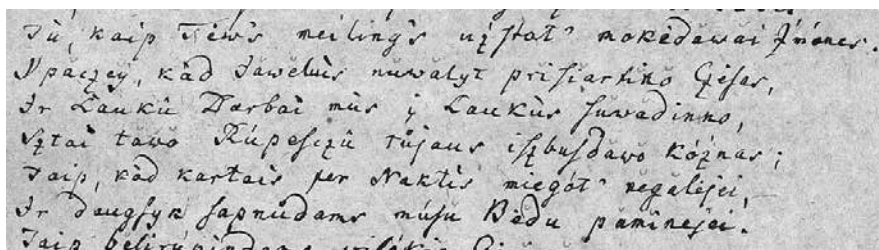 Tù, kaip Tėw's meiling's użstot' mokėdawai Żmones.
Ypaczey, kàd Jawelùs nuwalyt prisiartino Czėsas,
Ir Laukû Darbai mùs į Laukùs suwadinno,
Sztai tawo Rúpesczû tûjaus iszbusdawo kóżnas;
Taip, kàd kartais per Naktìs miegót' negalėjei,
Ir daugsyk sapnûdams músû Bėdu paminėjei.
Taip besirúpindams